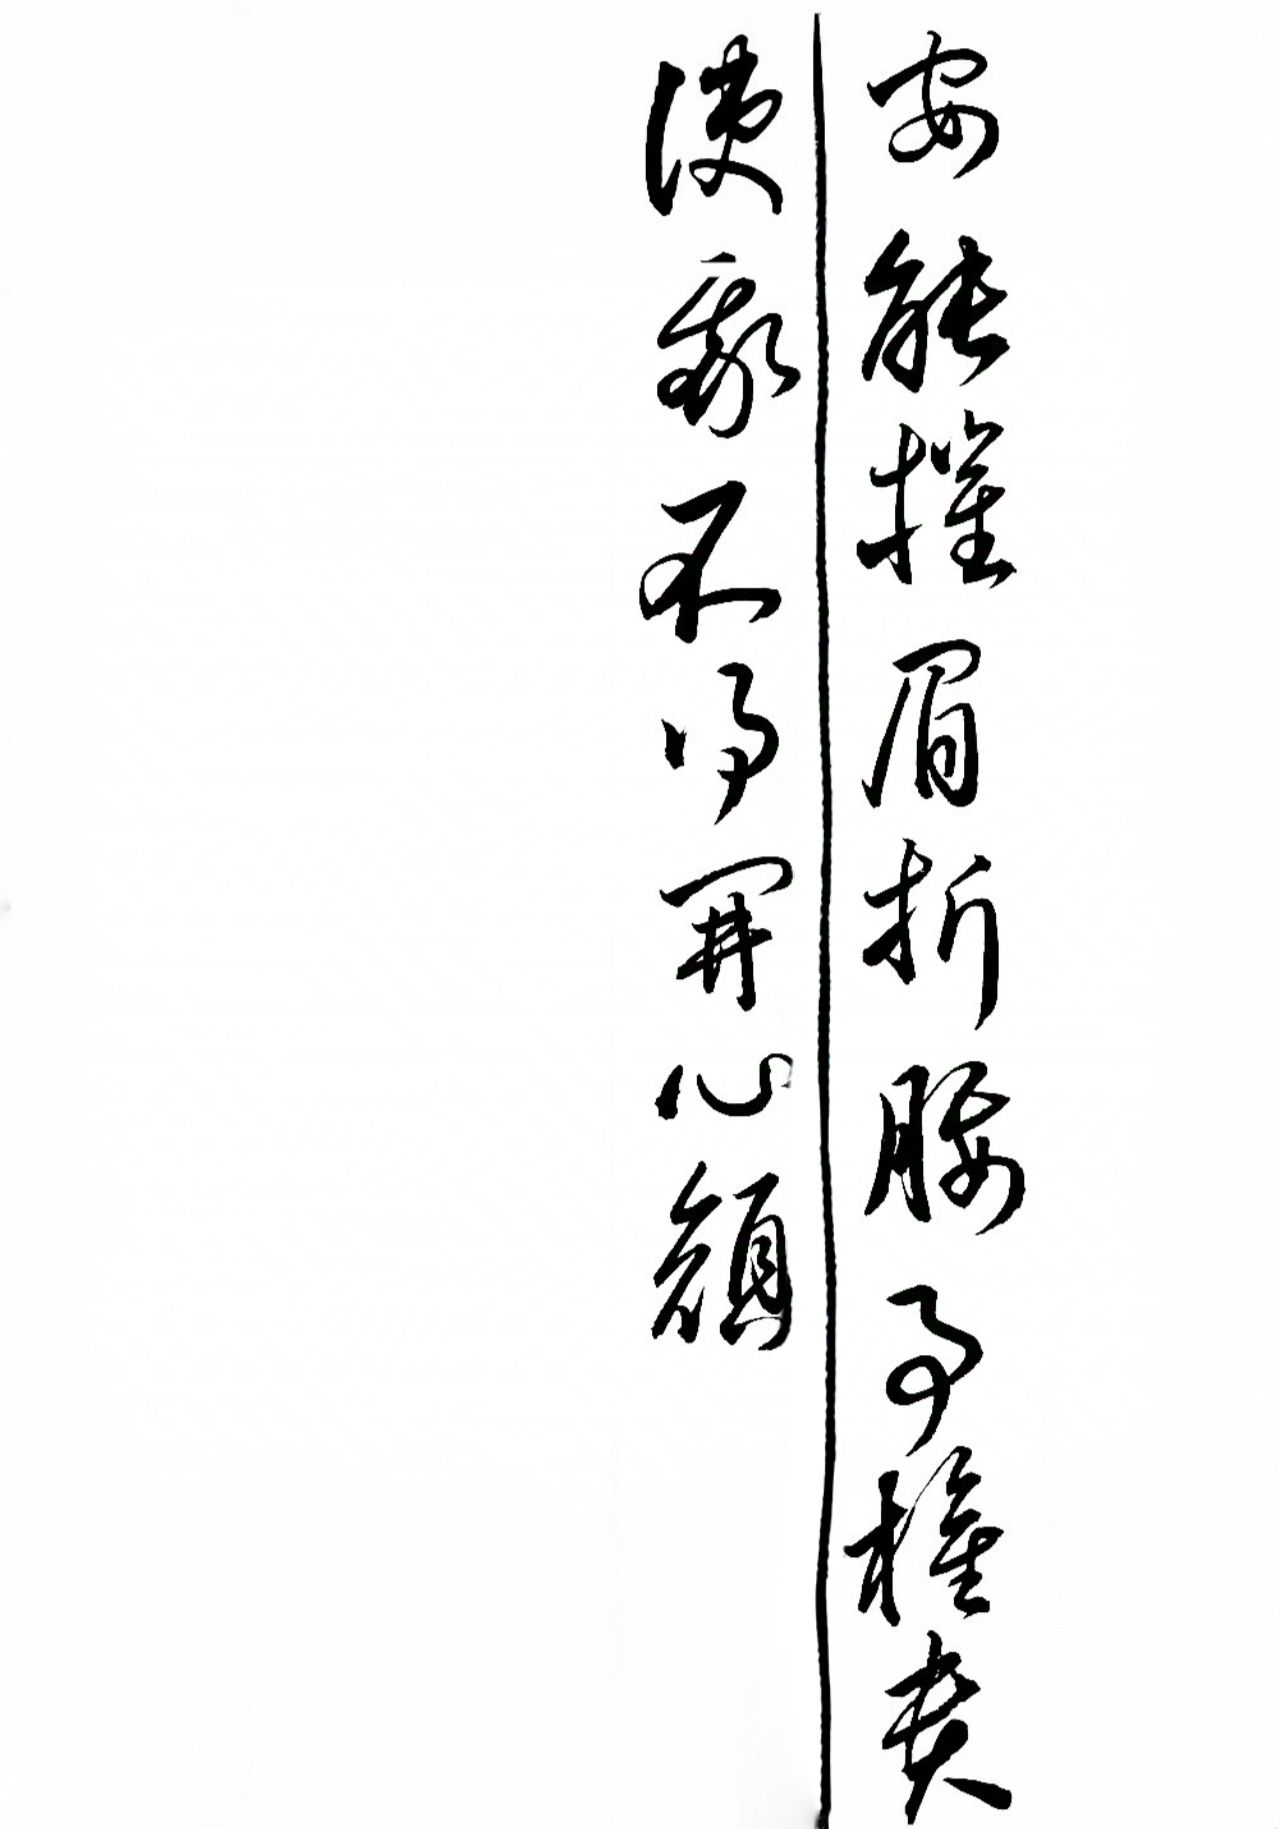 安能摧眉折腰事權貴
使我不得開心顏